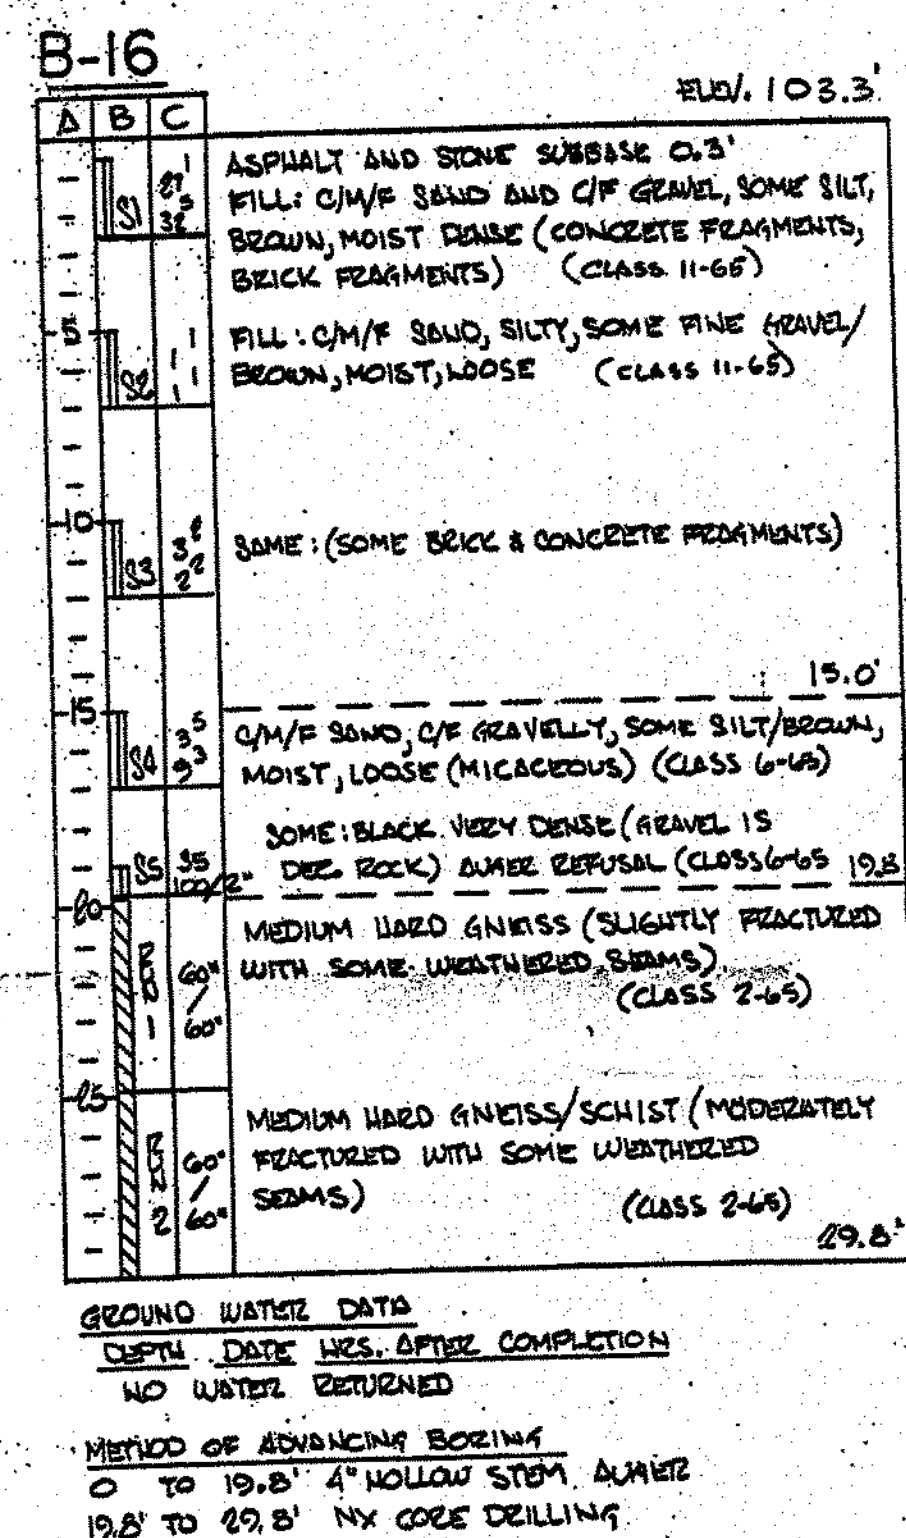 B-16
ELEV. 103.3'
A B C
ASPHALT AND STONE SUBBASE 0.3'
FILL: C/M/F SAND AND C/F GRAVEL, SOME SILT,
BROWN, MOIST DENSE (CONCRETE FRAGMENTS,
BRICK FRAGMENTS) (CLASS 11-65)
S1
1
27
5
32
5
FILL: C/M/F SAND, SILTY, SOME FINE GRAVEL/
BROWN, MOIST, LOOSE (CLASS 11-65)
S2
1
1
1
1
10
SAME: (SOME BRICK & CONCRETE FRAGMENTS)
S3
3
2
2
15.0'
15
C/M/F SAND, C/F GRAVELLY, SOME SILT/BROWN,
MOIST, LOOSE (MICACEOUS) (CLASS 6-65)
S4
5
3
3
SOME: BLACK VERY DENSE (GRAVEL IS
DEC. ROCK) AUGER REFUSAL (CLASS 6-65 19.8
S5
35
100/2"
20
MEDIUM HARD GNEISS (SLIGHTLY FRACTURED
WITH SOME WEATHERED SEAMS)
(CLASS 2-65)
RUN 1
60"
/
60"
25
MEDIUM HARD GNEISS/SCHIST (MODERATELY
FRACTURED WITH SOME WEATHERED
SEAMS) (CLASS 2-65)
RUN 2
60"
/
60"
29.8'
GROUND WATER DATA
DEPTH DATE HRS. AFTER COMPLETION
NO WATER RETURNED
METHOD OF ADVANCING BORING
0 TO 19.8' 4" HOLLOW STEM AUGER
19.8' TO 29.8' NX CORE DRILLING